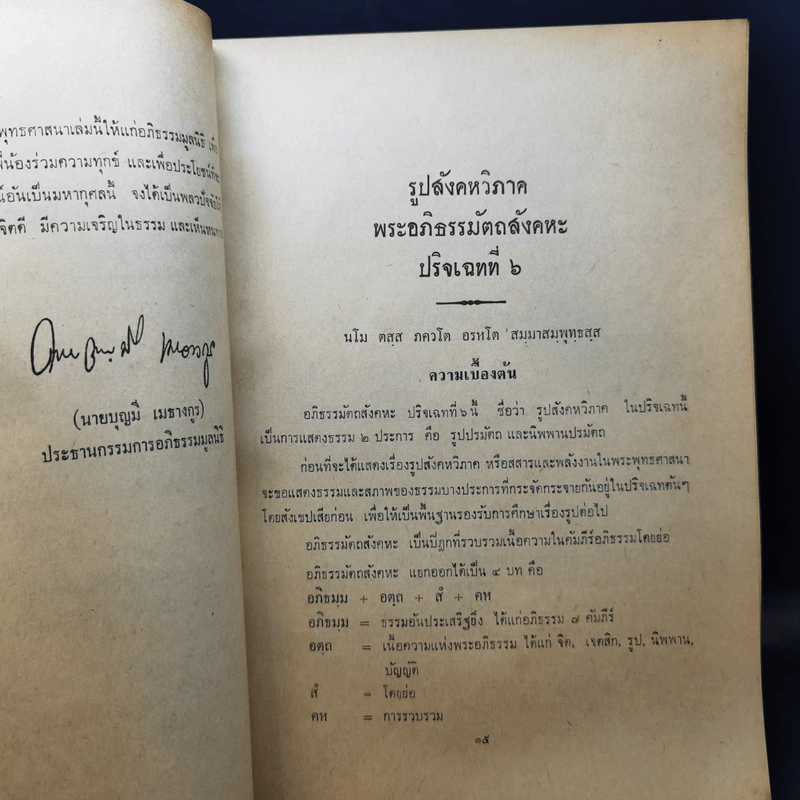 พุทธศาสนาเล่มนี้ให้แก่อภิธรรมมูลนิธิ เพื่อ
พี่น้องร่วมความทุกข์ และเพื่อประโยชน์
น์อันเป็นมหากุศลนี้ จงได้เป็นพลวปัจจัยให้
จิตดี มีความเจริญในธรรม และเห็น
(นายบุญมี เมธางกูร)
ประธานกรรมการอภิธรรมมูลนิธิ
รูปสังคหวิภาค
พระอภิธรรมัตถสังคหะ
ปริจเฉทที่ ๖
นโม ตสฺส ภควโต อรหโต สมฺมาสมฺพุทฺธสฺส
ความเบื้องต้น
อภิธรรมัตถสังคหะ ปริจเฉทที่ ๖ นี้ ชื่อว่า รูปสังคหวิภาค ในปริจเฉทนี้
เป็นการแสดงธรรม ๒ ประการ คือ รูปปรมัตถ และนิพพานปรมัตถ
ก่อนที่จะได้แสดงเรื่องรูปสังคหวิภาค หรือสสารและพลังงานในพระพุทธศาสนา
จะขอแสดงธรรมและสภาพของธรรมบางประการที่กระจัดกระจายกันอยู่ในปริจเฉทต้นๆ
โดยสังเขปเสียก่อน เพื่อให้เป็นพื้นฐานรองรับการศึกษาเรื่องรูปต่อไป
อภิธรรมัตถสังคหะ เป็นปิฎกที่รวบรวมเนื้อความในคัมภีร์อภิธรรมโดยย่อ
อภิธรรมัตถสังคหะ แยกออกได้เป็น ๔ บท คือ
อภิธมฺม + อตฺถ + สํ + คห
อภิธมฺม = ธรรมอันประเสริฐยิ่ง ได้แก่อภิธรรม ๗ คัมภีร์
อตฺถ = เนื้อความแห่งพระอภิธรรม ได้แก่ จิต, เจตสิก, รูป, นิพพาน,
บัญญัติ
สํ = โดยย่อ
คห = การรวบรวม
๑๕